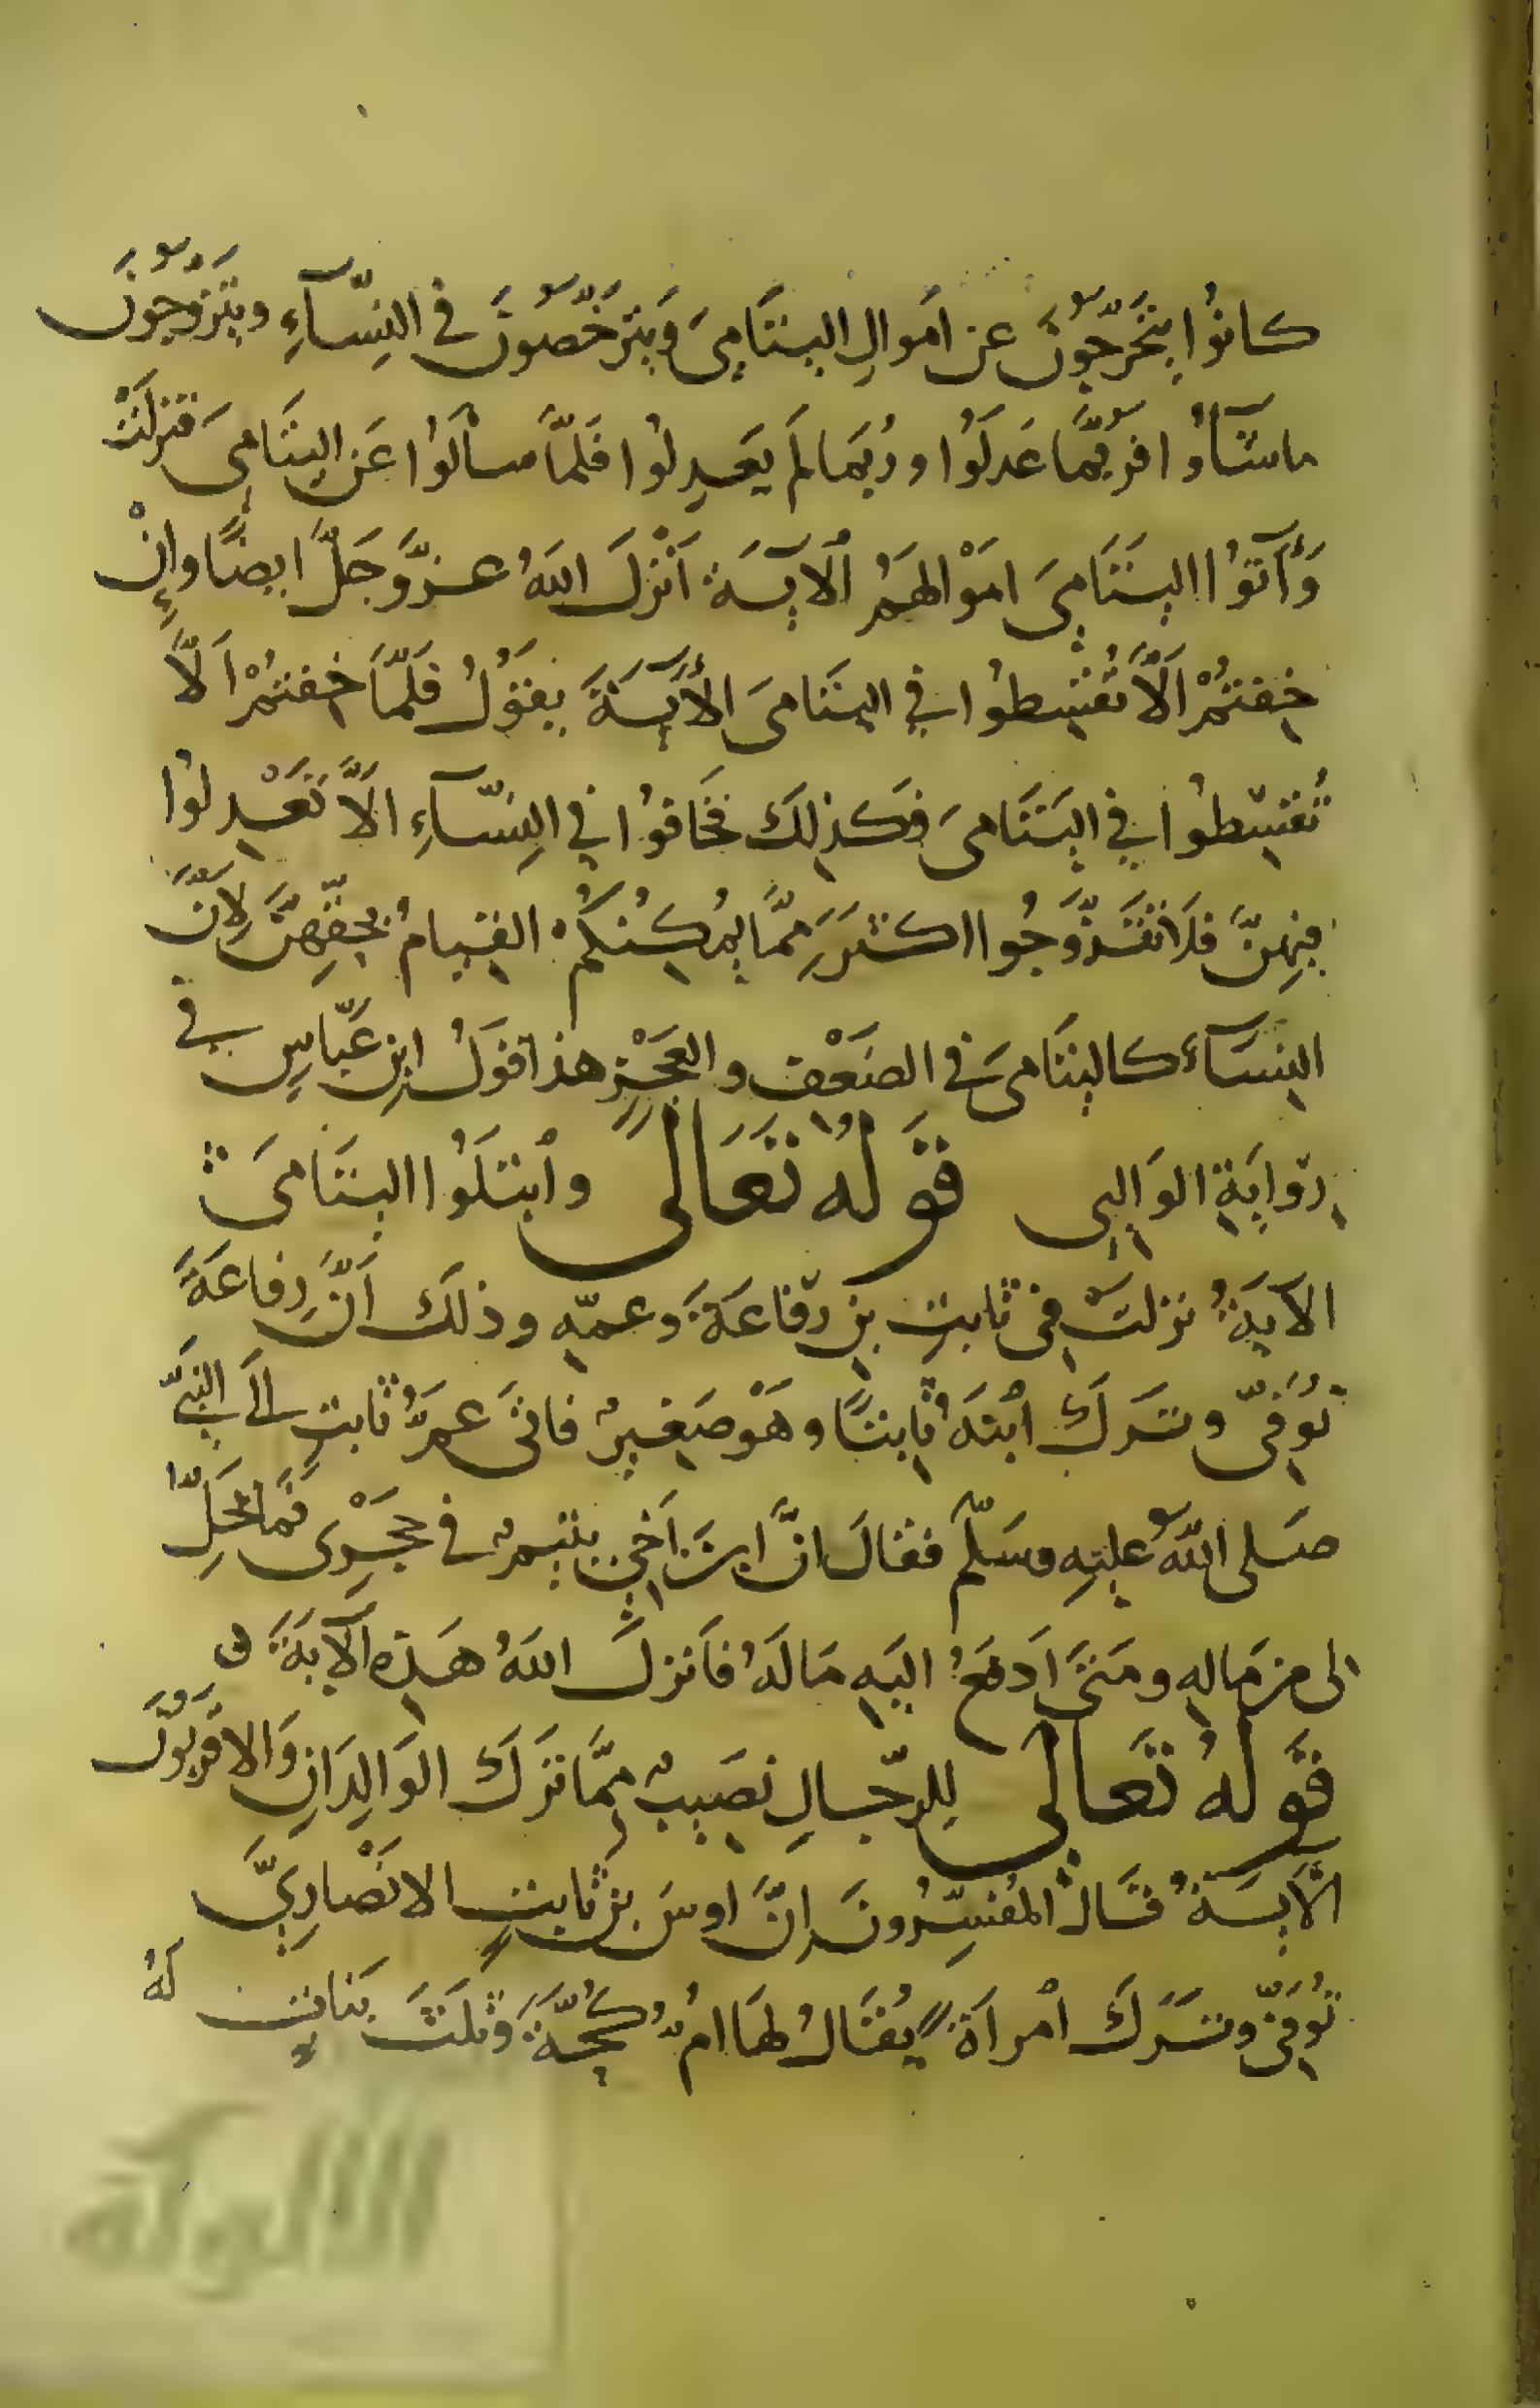 كانُوا يتَحَرَّجُونَ عن اَموالِ اليتَامىَ وَيترَخَّصُونَ في النِّسَآءِ ويتَزوَّجُونَ
ماشَآءُوا فرُبَّما عَدلُوا ورُبمَا لَم يَعدِلُوا فَلمَّا سألُوا عَنِ اليتَامىَ فنزلَتْ
وَأآتُوا اليتَامىَ امَوْالهَمُ ألآيَةَ أنْزلَ اللهُ عزَّوَجَلَّ ايضًا وإنْ
خِفتمُ ْاَلَّا تُقسِطوُا في اليتَامىَ الأَيَةَ يقوُلُ فَلمَّا خِفتمُ ْاَلَّا
تُقسِطُوا في اليَتَامىَ فكَذلِكَ فخَافوُا في النِسّآءِ الَّا تَعْدِلوُا
فيهنَّ فلَا تتَزَوَّجُوا اكثرَ مِمَّا يمُكِنُكُم ْالقيامُ بحقِّهنَّ لِانَّ
النِسَآءَ كاليتَامىَ في الضَعْفِ والعَجْزِ هذا قوَلُ ابنِ عبَّاسٍ في
رِوَايَةِ الوَالِبى قَولهُ تَعَالى وأبتلوُا اليتَامىَ
الآيَةُ نزلتْ فى ثابتِ بنِ رِفاعَةَ وعمّهِ وذلكَ اَنَّ رِفاعَةَ
تُوُفىّ وترَكَ أبْنَهُ ثابتًا وهَوْ صَغيرٌ فاتىَ عمُّ ثابتٍ الىَ النَبيّ
صَلى اللهُ عليَهِ وسَلّمَ فقالَ انَّ ابنَ اَخِي يتيمٌ في حَجْرِى فمَا يَحلُّ
لى من مَالهِ ومَتىَ اَدفعُ اليَهِ مَالَهُ فاَنزلَ اللهُ هَذِه الآيَةَ
قَولهُ تَعَالى للِرّجَالِ نَصَيبٌ مِمَّا ترَكَ الوَالِدَانِ وَالاقرَبوُنَ
الآيَةُ قالَ المُفسِّرُونَ انَّ اوسَ بنَ ثابتٍ الانْصَارِيَّ
تُوُفىّ وترَكَ أمْرأَةً يُقَالُ لهَا امُّ كُجَّةَ وثلَثَ بَنَاتٍ لَهُ
الألوكة